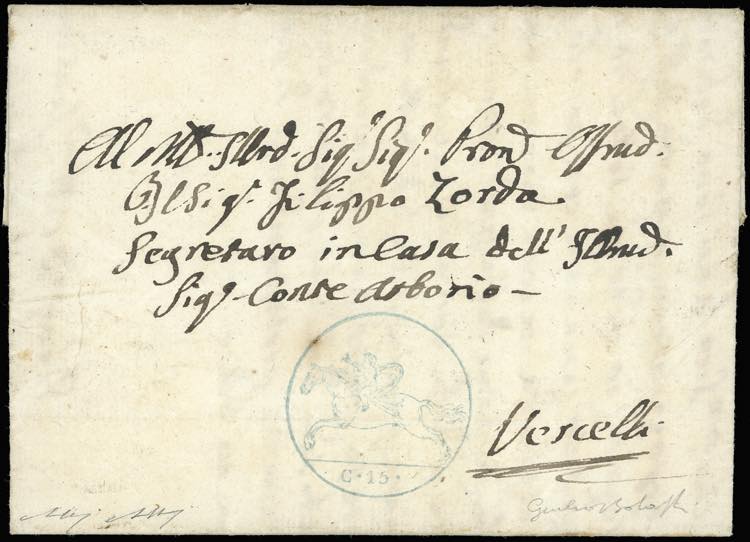 Al M.to Illrd. Sigr Sigr. Pron Ossmd.
Il Sigr. Filippo Zorda
Segretaro in Casa dell' Illmd.
Sigr Conte Arborio —
C · 15 ·
Vercelli
Giulio Bolaffi